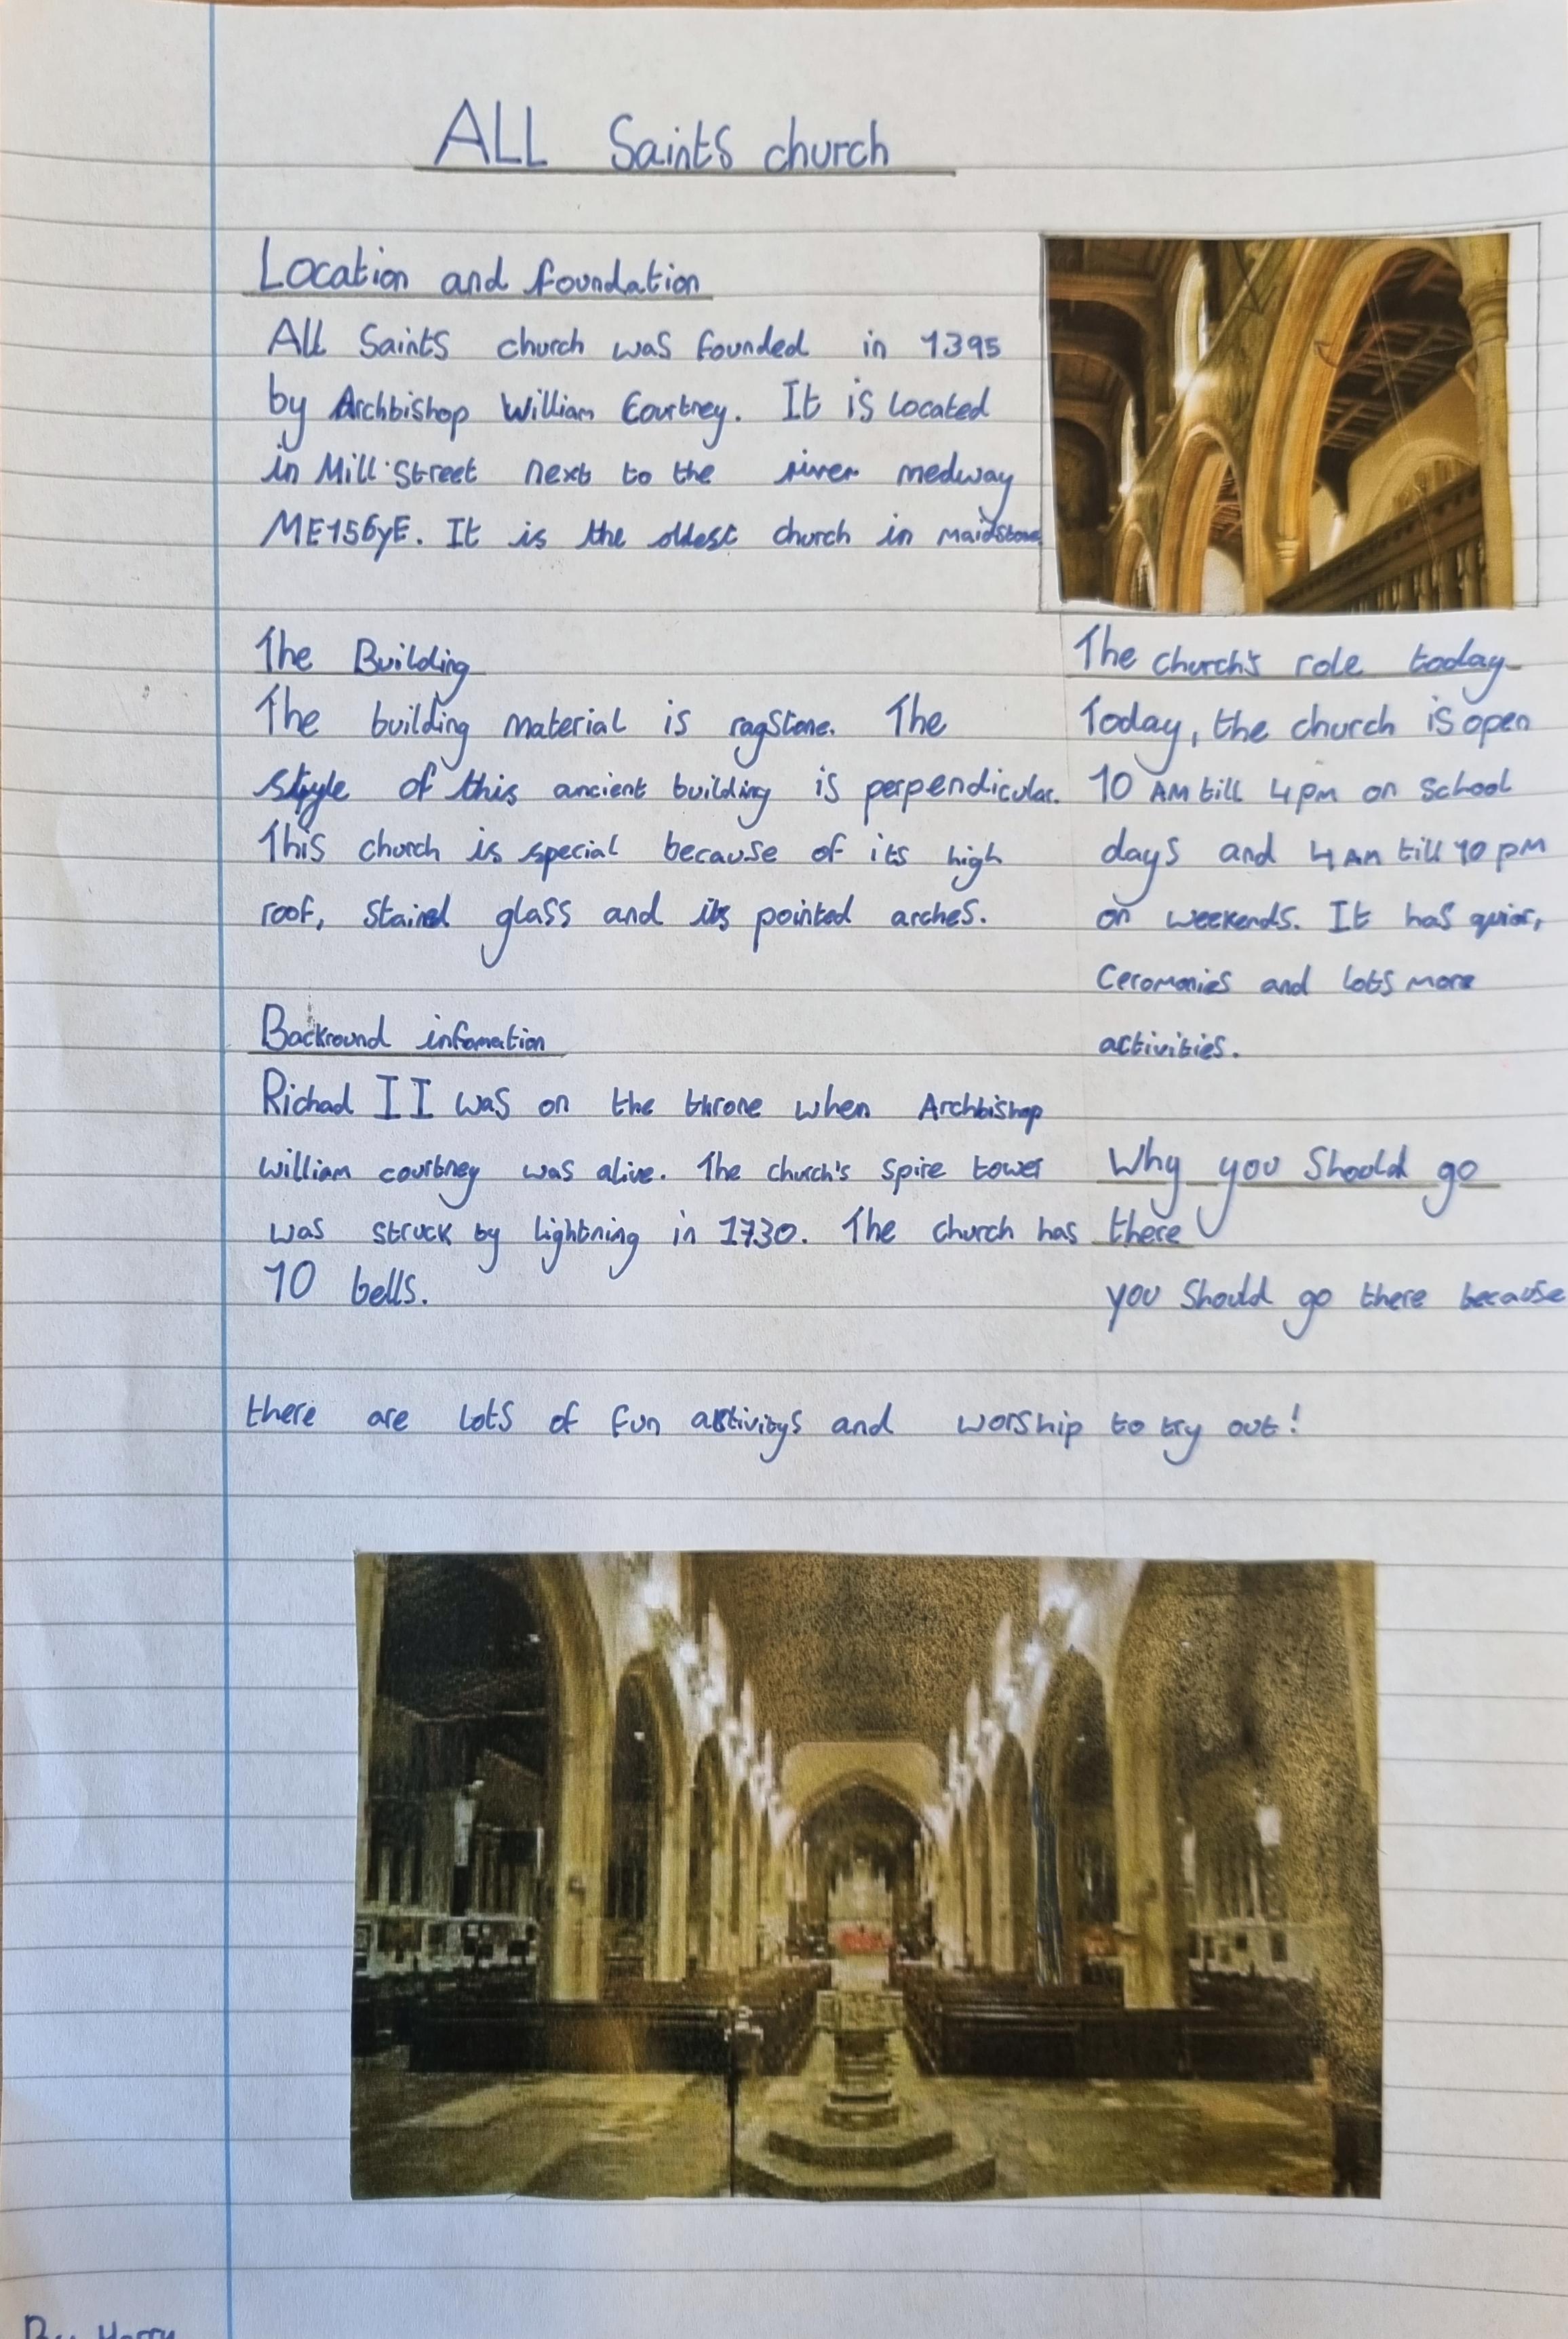 ALL Saints church
Location and foundation
All Saints church was founded in 1395
by Archbishop William Courtney. It is located
in Mill Street next to the river medway
ME156yE. It is the oldest church in maidstone
The Building
The building material is ragstone. The
style of this ancient building is perpendicular.
This church is special because of its high
roof, stained glass and its pointed arches.
Backround infomation
Richad II was on the throne when Archbishop
william courtney was alive. The church's spire tower
was struck by lightning in 1730. The church has
10 bells.
The church's role today
Today, the church is open
10 AM till 4pm on School
days and 4 AM till 10 pm
on weekends. It has quior,
Ceromonies and lots more
activities.
Why you Should go
there
you Should go there because
there are lots of fun activitys and worship to try out!
By Harry